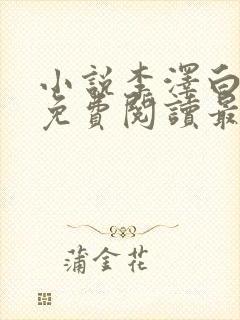 小說李澤白
免費閱讀最
蒲金花